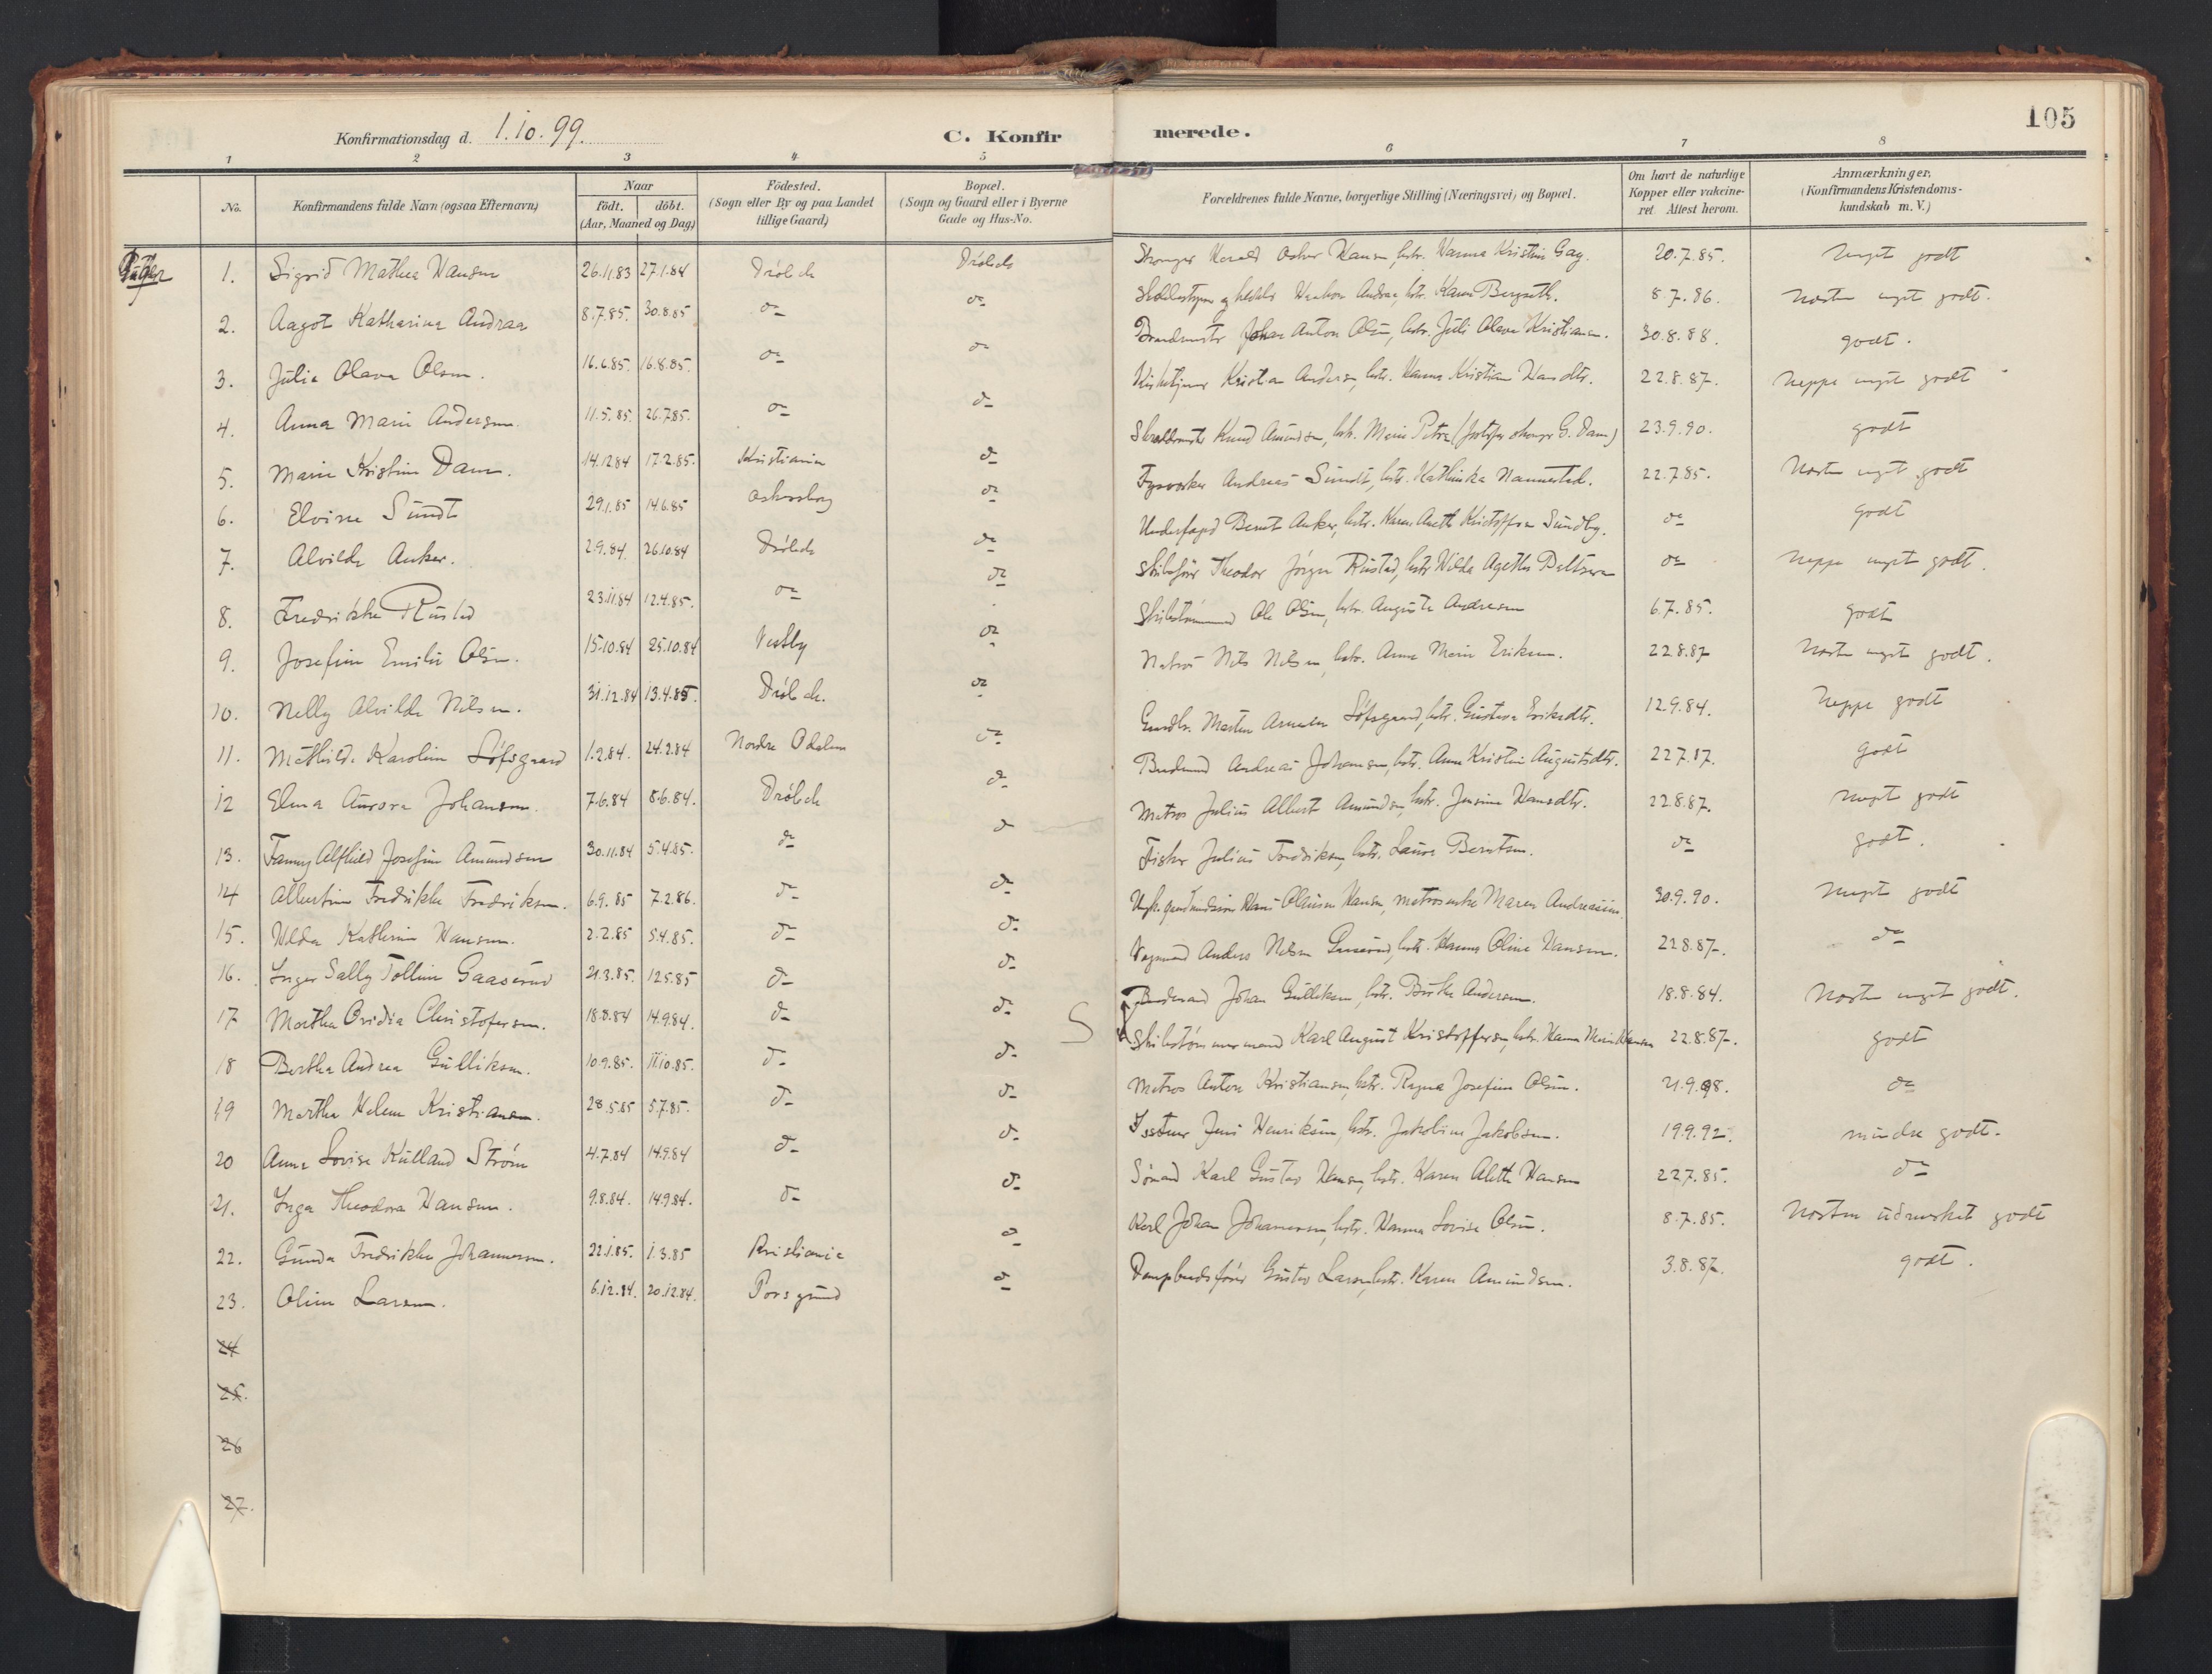 Konfirmationsdag d. 1.10.99.
C. Konfirmerede.
105
1 2 3 4 5 6 7 8
No.
Konfirmandens fulde Navn (ogsaa Efternavn)
Naar
födt. döbt.
(Aar, Maaned og Dag)
Födested.
(Sogn eller By og paa Landet
tillige Gaard)
Bopæl.
(Sogn og Gaard eller i Byerne
Gade og Hus-No.
Forældrenes fulde Navne, borgerlige Stilling (Næringsvei) og Bopæl.
Om havt de naturlige
Kopper eller vakcine-
ret. Attest herom.
Anmærkninger.
(Konfirmandens Kristendoms-
kundskab m.V.)
Piger
1. Sigrid Mathea Hansen 26.11.83 27.1.84 Dröbak Dröbak Harald Oskar Hansen, hstr. Hanna Kristin Gay. 20.7.85. meget godt
2. Aagot Katharina Andraa 8.7.85. 30.8.85 do do Haakon Andraa, hstr. Karen Bergseth. 8.7.86. Næsten meget godt.
3. Julie Olava Olsen. 16.6.85. 16.8.85. do do Johan Anton Olsen, hstr. Juli Olava Kristiansen. 30.8.88. godt.
4. Anna Marie Andersen. 11.5.85. 26.7.85. do do Kristian Andersen, hstr. Hanna Kristian Hansdtr. 22.8.87. Neppe meget godt
5. Marie Kristine Dam. 14.12.84 17.2.85. Kristiania do Knud Amundsen, hstr. Marie Petra 23.9.90. godt
6. Elvine Sundt 29.1.85 14.6.85 do Fyrvorker Andreas Sundt, hstr. Kathinka Nannestad. 22.7.85. Næsten meget godt
7. Alvilde Anker. 2.9.84. 26.10.84 Dröbak do Underfoged Bernt Anker, hstr. Karen Aneth Kristoffersen Sundby. do godt
8. Fredrikke Rustad 23.11.84 12.4.85. do do Skibsförer Theodor Jörgen Rustad, hstr. Hilda Agathe Pettersen do neppe meget godt.
9. Josefine Emilie Olsen. 15.10.84 25.10.84 Vestby do Skibstömmermand Ole Olsen, hstr. Augusta Andresen 6.7.85. godt
10. Nelly Alvilde Nilsen. 31.12.84 13.4.85. Dröbak. do Matros Nils Nilsen, hstr. Anne Marie Eriksen. 22.8.87 Næsten meget godt.
11. Mathilde Karoline Löfsgaard 1.2.84. 24.2.84 Nordre Odalen do Gaardbr. Martin Löfsgaard, hstr. Gustava Eriksdtr. 12.9.84. Neppe godt
12 Elma Aurora Johansen. 7.6.84 8.6.84. Dröbak do Andreas Johansen, hstr. Anne Kristine Augustsdtr. 22.7.87. godt
13. Fanny Alfhild Josefine Amundsen 30.11.84 5.4.85. do do Matros Julius Albert Amundsen, hstr. Josine Hansdtr. 22.8.87. meget godt
14 Albertine Fredrikke Fredriksen. 6.9.85 7.2.86. do do Fisker Julius Fredriksen, hstr. Laura Berntsen. do godt.
15. Hilda Kathrine Hansen. 2.2.85 5.4.85. do do Hans Olausen Hansen, matrosenke Maren Andreassen. 30.9.90. meget godt
16. Inger Sally Tolline Gaaserud 21.3.85. 12.5.85 do do Anders Nilsen Gaaserud, hstr. Hanna Oline Hansen. 22.8.87. do
17 Martha Ovidia Christofersen. 18.8.84 14.9.84. do do Johan Gulliksen, hstr. Birthe Andersen. 18.8.84. Næsten meget godt.
18 Bertha Andrea Gulliksen. 10.9.85. 11.10.85. do do Skibstömmermand Karl August Kristoffersen, hstr. Hanna Marie Hansen 22.8.87. godt
19 Martha Helene Kristiansen. 28.5.85 5.7.85. do do Matros Anton Kristiansen, hstr. Ragna Josefine Olsen. 21.9.98. do
20 Anna Lovise Kulland Ström 4.7.84 14.9.84 do do Jens Henriksen, hstr. Jakobine Jakobsen. 19.9.92. mindre godt.
21. Inga Theodora Hansen. 9.8.84. 14.9.84. do do Sömand Karl Gustav Hansen, hstr. Karen Aleth Hansen 22.7.85. do
22. Gunda Fredrikke Johannesen. 22.1.85. 1.3.85 Kristiania do Karl Johan Johannesen, hstr. Hanna Lovise Olsen. 8.7.85. Næsten udmerket godt
23. Oline Larsen. 6.12.84. 20.12.84. Porsgrund do Gustav Larsen, hstr. Karen Amundsen. 3.8.87. godt.
24
25.
26
27.
S